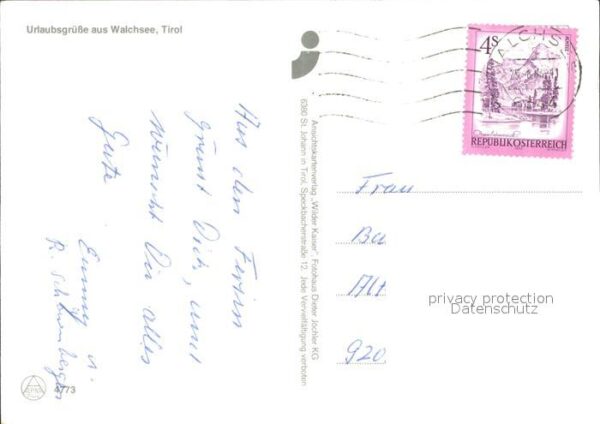 Urlaubsgrüße aus Walchsee, Tirol
Aus den Ferien
grüsst Dich, und
wünscht Dir alles
Gute
Emmy u.
R. Schönberger
4773
Ansichtskartenverlag „Wilder Kaiser“, Fotohaus Dieter Jöchler KG
6380 St. Johann in Tirol, Speckbacherstraße 12. Jede Vervielfältigung verboten
WALCHS
4S
REPUBLIK ÖSTERREICH
Frau
Ba
Alt
920
privacy protection
Datenschutz